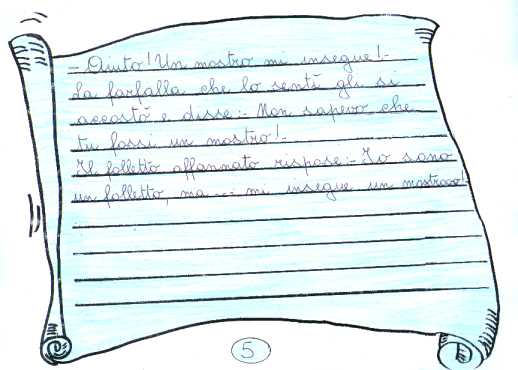 - Aiuto! Un mostro mi insegue! -
La farfalla che lo sentì gli si
accostò e disse: - Non sapevo che
tu fossi un mostro! -
Il folletto affannato rispose: - Io sono
un folletto, ma... mi insegue un mostrooo!
5